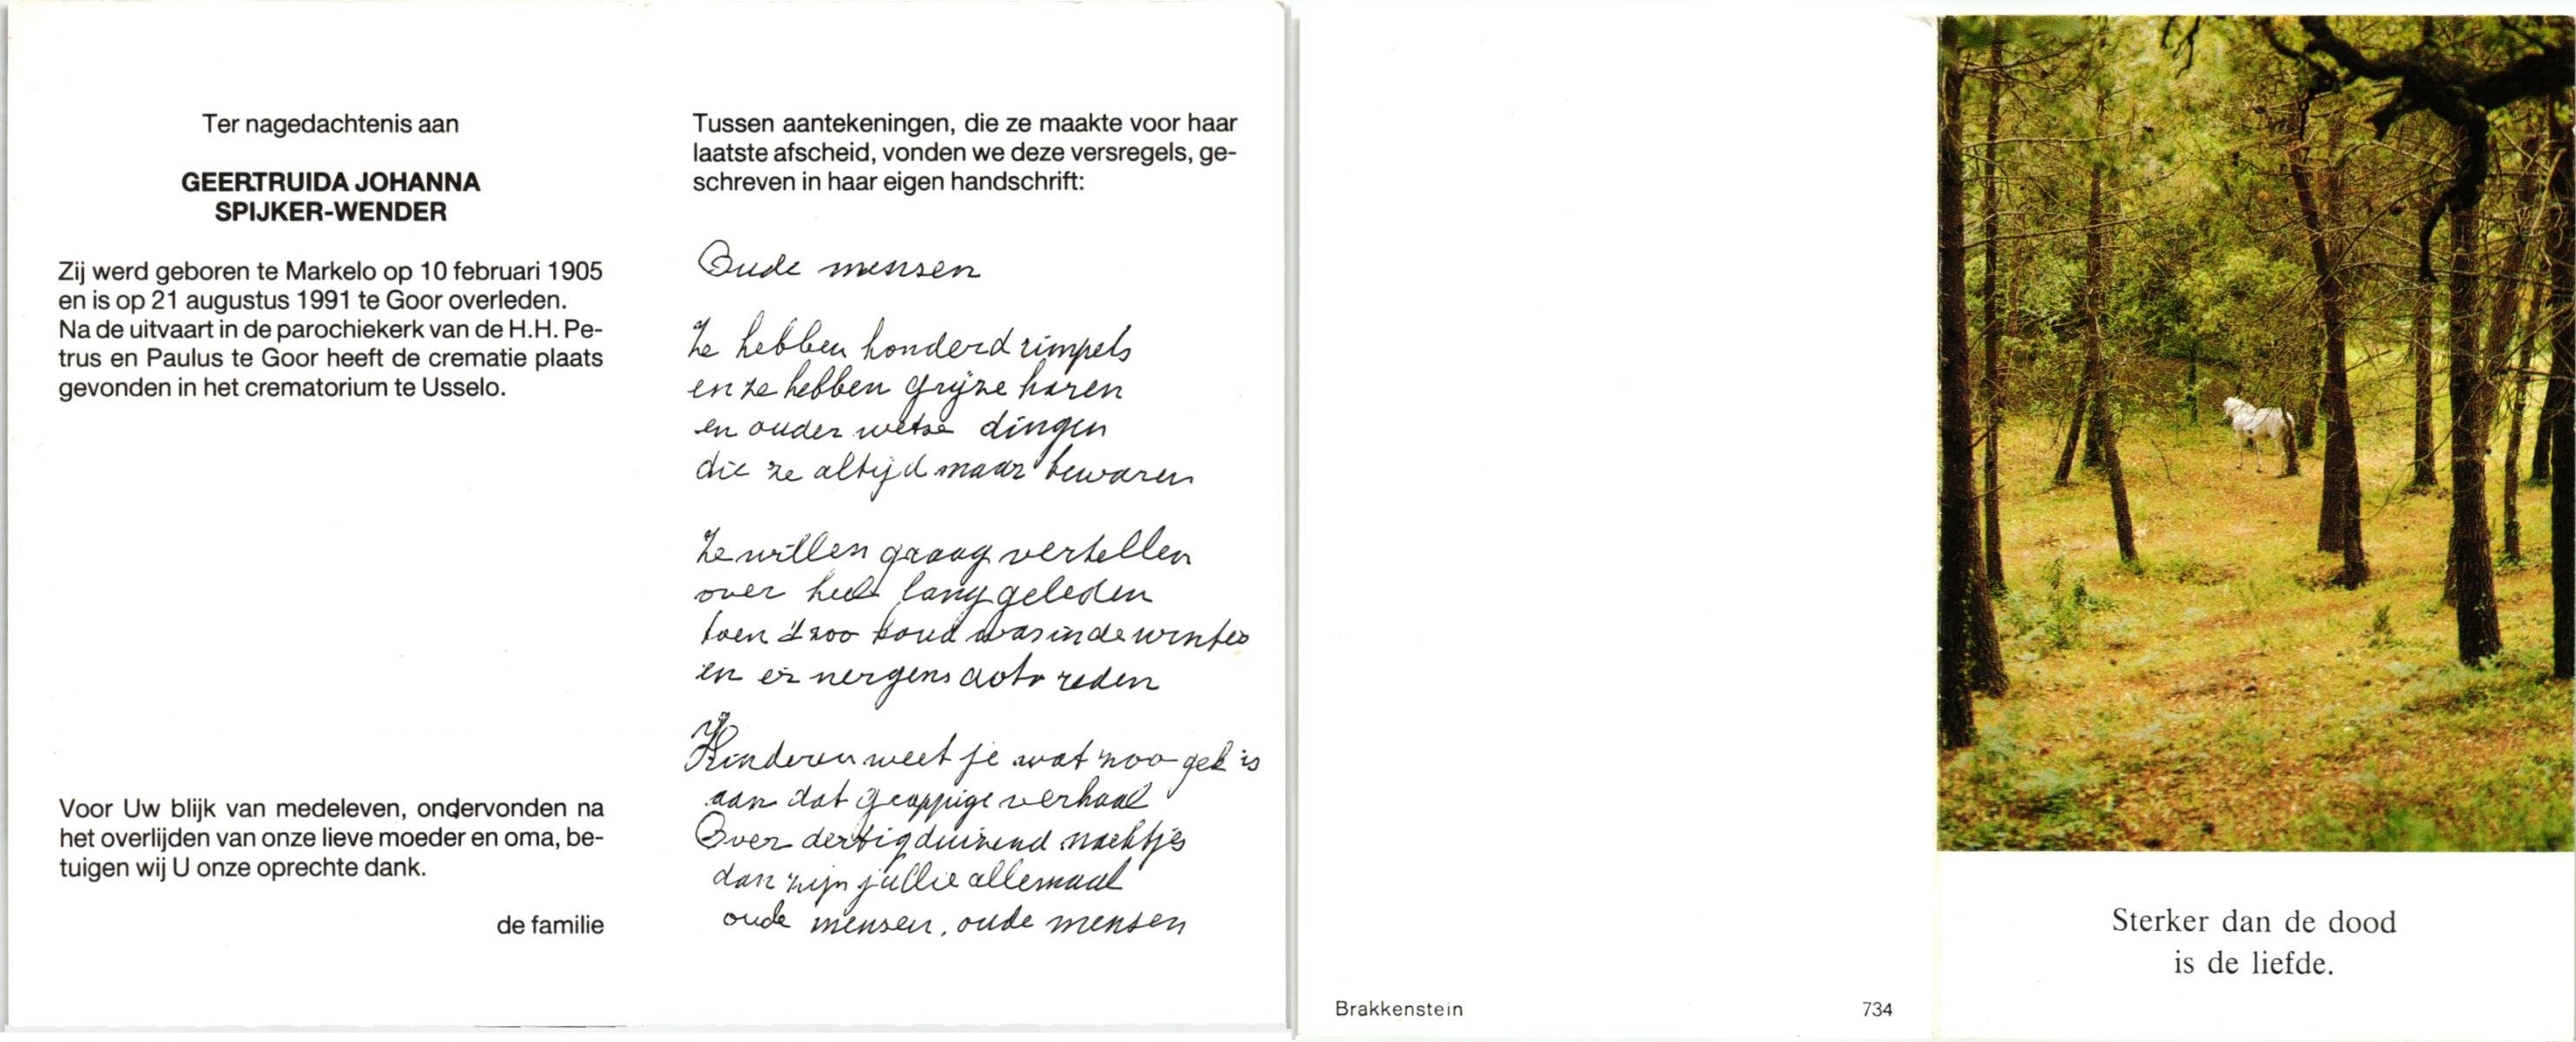 Ter nagedachtenis aan
GEERTRUIDA JOHANNA
SPIJKER-WENDER
Zij werd geboren te Markelo op 10 februari 1905
en is op 21 augustus 1991 te Goor overleden.
Na de uitvaart in de parochiekerk van de H.H. Pe-
trus en Paulus te Goor heeft de crematie plaats
gevonden in het crematorium te Usselo.
Voor Uw blijk van medeleven, ondervonden na
het overlijden van onze lieve moeder en oma, be-
tuigen wij U onze oprechte dank.
de familie
Tussen aantekeningen, die ze maakte voor haar
laatste afscheid, vonden we deze versregels, ge-
schreven in haar eigen handschrift:
Oude mensen
Ze hebben honderd rimpels
en ze hebben grijze haren
en ouder wetse dingen
die ze altijd maar bewaren
Ze willen graag vertellen
over heel lang geleden
toen 't zoo koud was in de winter
en er nergens auto reden
Kinderen weet je wat zoo gek is
aan dat grappige verhaal
Over dertig duizend nachtjes
dan zijn jullie allemaal
oude mensen, oude mensen
Brakkenstein 734
Sterker dan de dood
is de liefde.